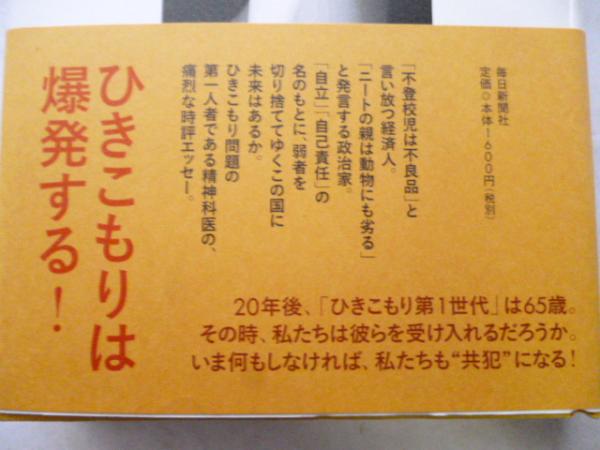 毎日新聞社
定価○本体1600円(税別)
「不登校児は不良品」と
言い放つ経済人。
「ニートの親は動物にも劣る」
と発言する政治家。
「自立」「自己責任」の
名のもとに、弱者を
切り捨ててゆくこの国に
未来はあるか。
ひきこもり問題の
第一人者である精神科医の、
痛烈な時評エッセー。
ひきこもりは
爆発する!
20年後、「ひきこもり第1世代」は65歳。
その時、私たちは彼らを受け入れるだろうか。
いま何もしなければ、私たちも“共犯”になる!